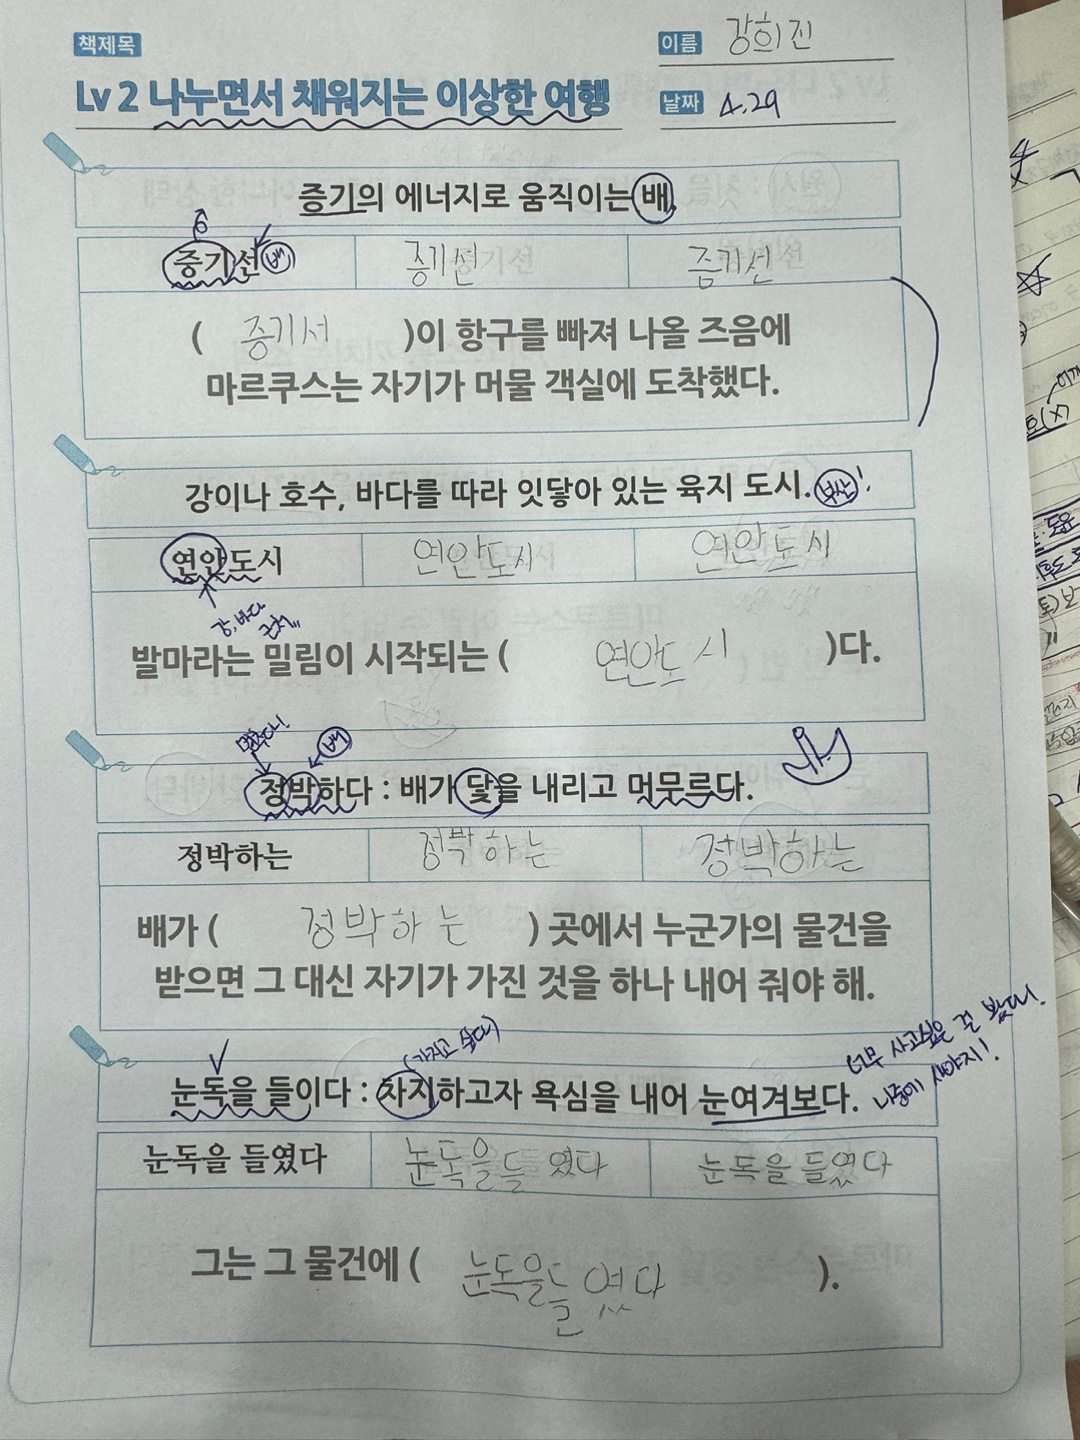 책제목
이름 강희진
Lv 2 나누면서 채워지는 이상한 여행
날짜 4.29
증기의 에너지로 움직이는 배.
증기선 배 증기선 증기선
( 증기서 )이 항구를 빠져 나올 즈음에
마르쿠스는 자기가 머물 객실에 도착했다.
강이나 호수, 바다를 따라 잇닿아 있는 육지 도시. 부산!
연안도시 연안도시 연안도시
강, 바다
발마라는 밀림이 시작되는 ( 연안도시 )다.
멈추다! 배
정박하다 : 배가 닻을 내리고 머무르다.
정박하는 정박하는 정박하는
배가 ( 정박하는 ) 곳에서 누군가의 물건을
받으면 그 대신 자기가 가진 것을 하나 내어 줘야 해.
(가지고 싶다)
너무 사고싶은 걸 봤다.
눈독을 들이다 : 차지하고자 욕심을 내어 눈여겨보다.
나중에 사야지!
눈독을 들였다 눈독을들였다 눈독을 들였다
그는 그 물건에 ( 눈독을들였다 ).